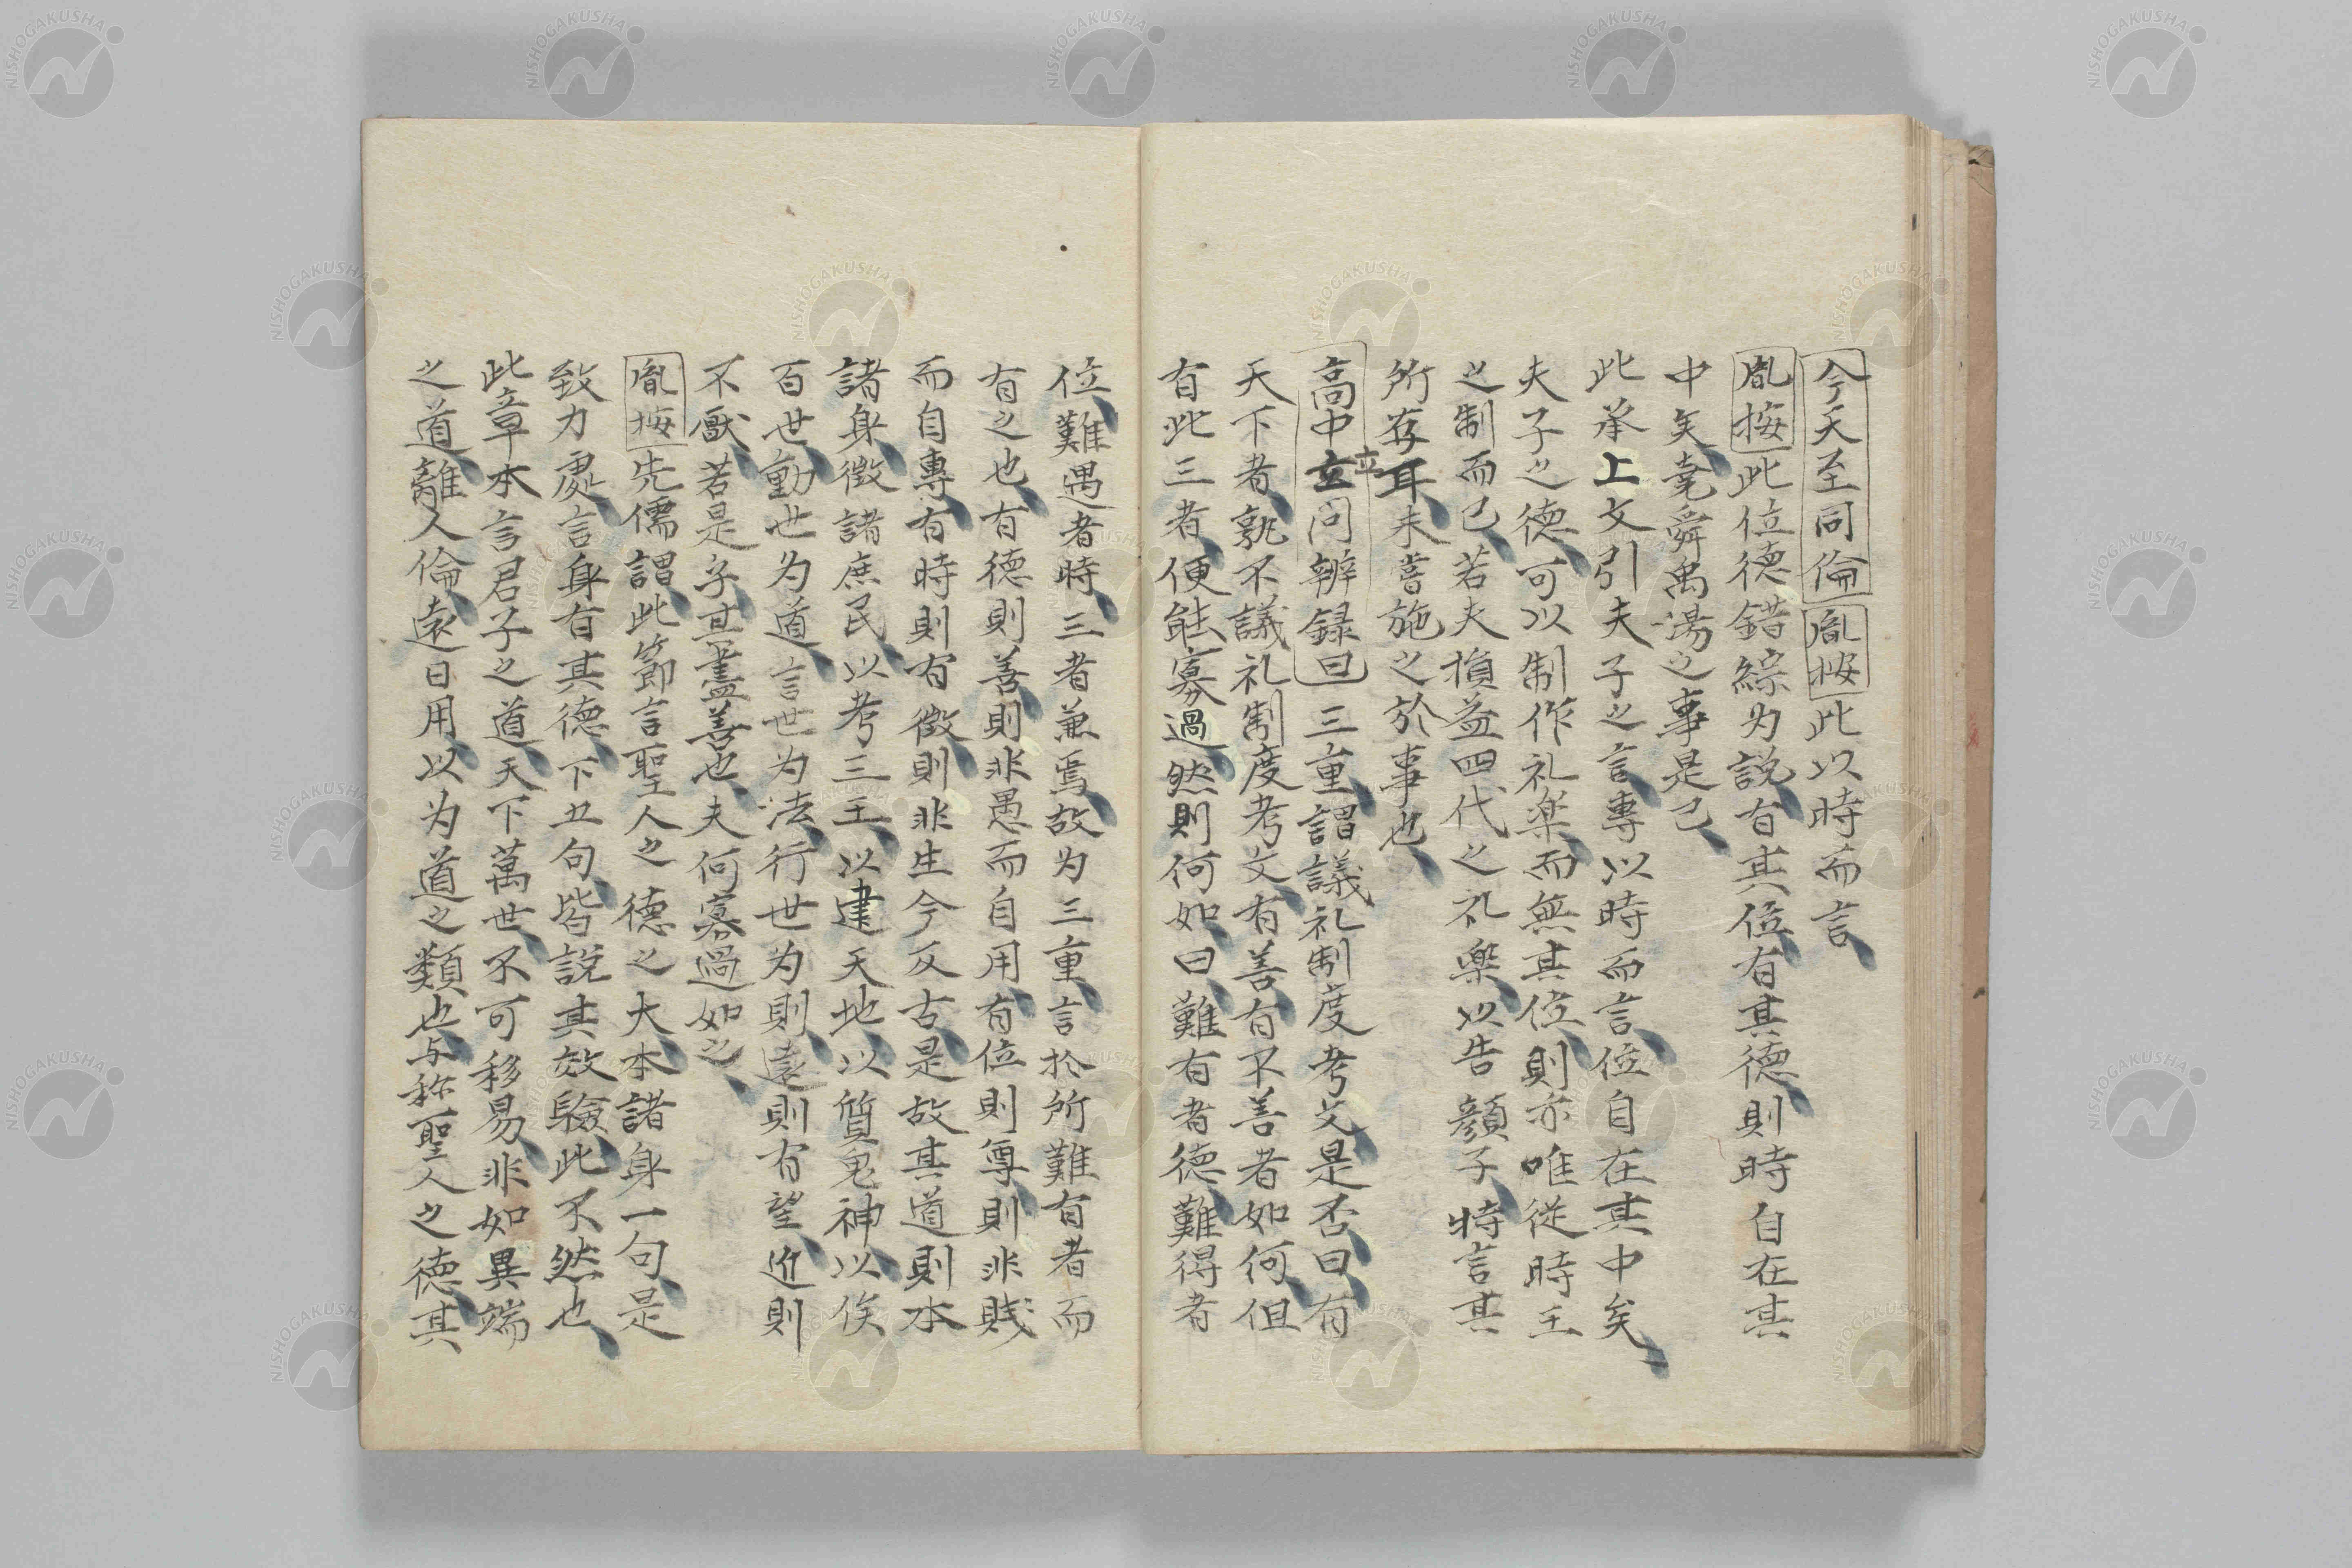 今天至同倫胤按此以時而言
胤按此位徳錯綜为説有其位有其徳則時自在其
中矣尭舜禹湯之事是已
此承上文引夫子之言專以時而言位自在其中矣
夫子之徳可以制作礼楽而無其位則亦唯従時王
之制而已若夫損益四代之礼樂以告顔子特言其
所存耳未嘗施之於事也
高中玄立问辨録曰三重謂議礼制度考文是否曰有
天下者孰不議礼制度考文有善有不善者如何但
有此三者便能寡過然則何如曰難有者徳難得者
位難遇者時三者兼焉故为三重言於所難有者而
有之也有徳則善則非愚而自用有位則尊則非賎
而自專有時則有徴則非生今反古是故其道則本
諸身徴諸庶民以考三王以建天地以質鬼神以俟
百世動世为道言世为法行世为則遠則有望近則
不厭若是乎其盡善也夫何寡過如之
胤按先儒謂此節言聖人之德之大本諸身一句是
致力處言身有其徳下五句皆説其效驗此不然也
此章本言君子之道天下萬世不可移易非如異端
之道離人倫遠日用以为道之類也与称聖人之徳其
NISHOGAKUSHA